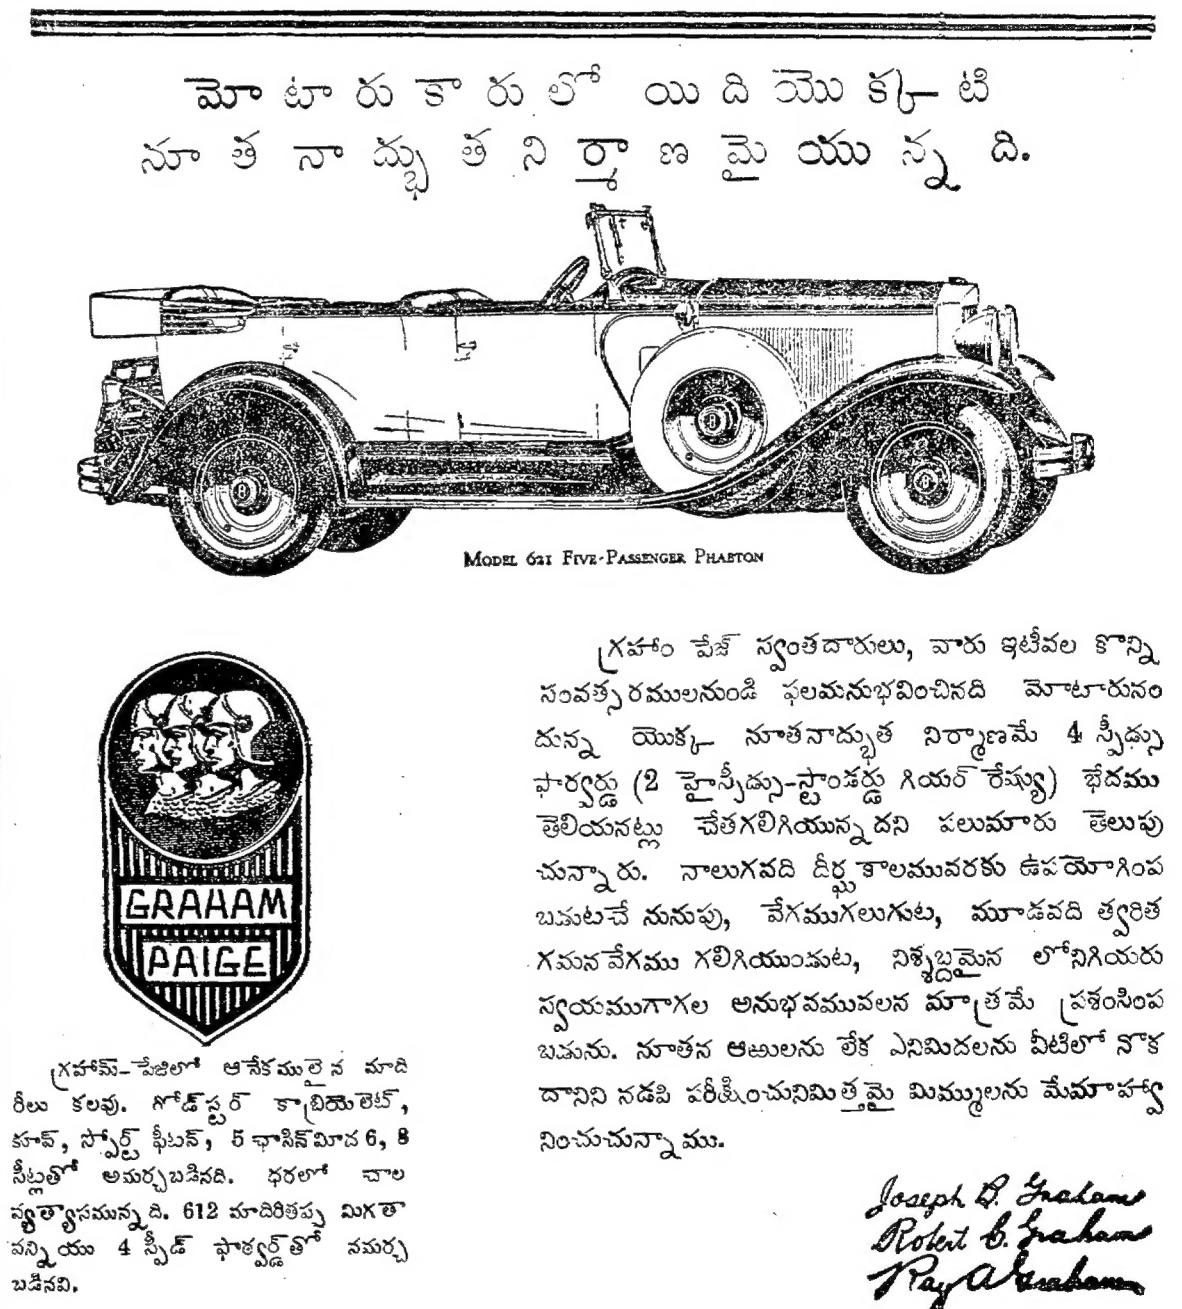 మోటారుకారులో యిదియొక్కటి
నూతనాద్భుతనిర్మాణమైయున్నది.
MODEL 621 FIVE-PASSENGER PHAETON
GRAHAM
PAIGE
గ్రహామ్-పేజిలో ఆనేకములైన మాది
రీలు కలవు. గోడ్‌స్టర్ కాబ్రియెలెట్,
కూప్, స్పోర్ట్ ఫీటన్, 5 ఛాసిస్‌మీద 6, 8
సీట్లతో అమర్చబడినది. ధరలో చాల
వ్యత్యాసమున్నది. 612 మాదిరితప్ప మిగతా
వన్నియు 4 స్పీడ్ ఫార్వర్డ్‌తో నమర్చ
బడినవి.
గ్రహాం పేజ్ స్వంతదారులు, వారు ఇటీవల కొన్ని
సంవత్సరములనుండి ఫలమనుభవించినది మోటారునం
దున్న యొక్క నూతనాద్భుత నిర్మాణమే 4 స్పీడ్సు
ఫార్వర్డు (2 హైస్పీడ్సు-స్టాండర్డు గియర్ రేష్యు) భేదము
తెలియనట్లు చేతగలిగియున్నదని పలుమారు తెలుపు
చున్నారు. నాలుగవది దీర్ఘకాలమువరకు ఉపయోగింప
బడుటచే నునుపు, వేగముగలుగుట, మూడవది త్వరిత
గమనవేగము గలిగియుండుట, నిశ్శబ్దమైన లోనిగియరు
స్వయముగాగల అనుభవమువలన మాత్రమే ప్రశంసింప
బడును. నూతన ఆఱులను లేక ఎనిమిదలను వీటిలో నొక
దానిని నడపి పరీక్షించునిమిత్తమై మిమ్ములను మేమాహ్వా
నించుచున్నాము.
Joseph B. Graham
Robert C. Graham
Ray A Graham